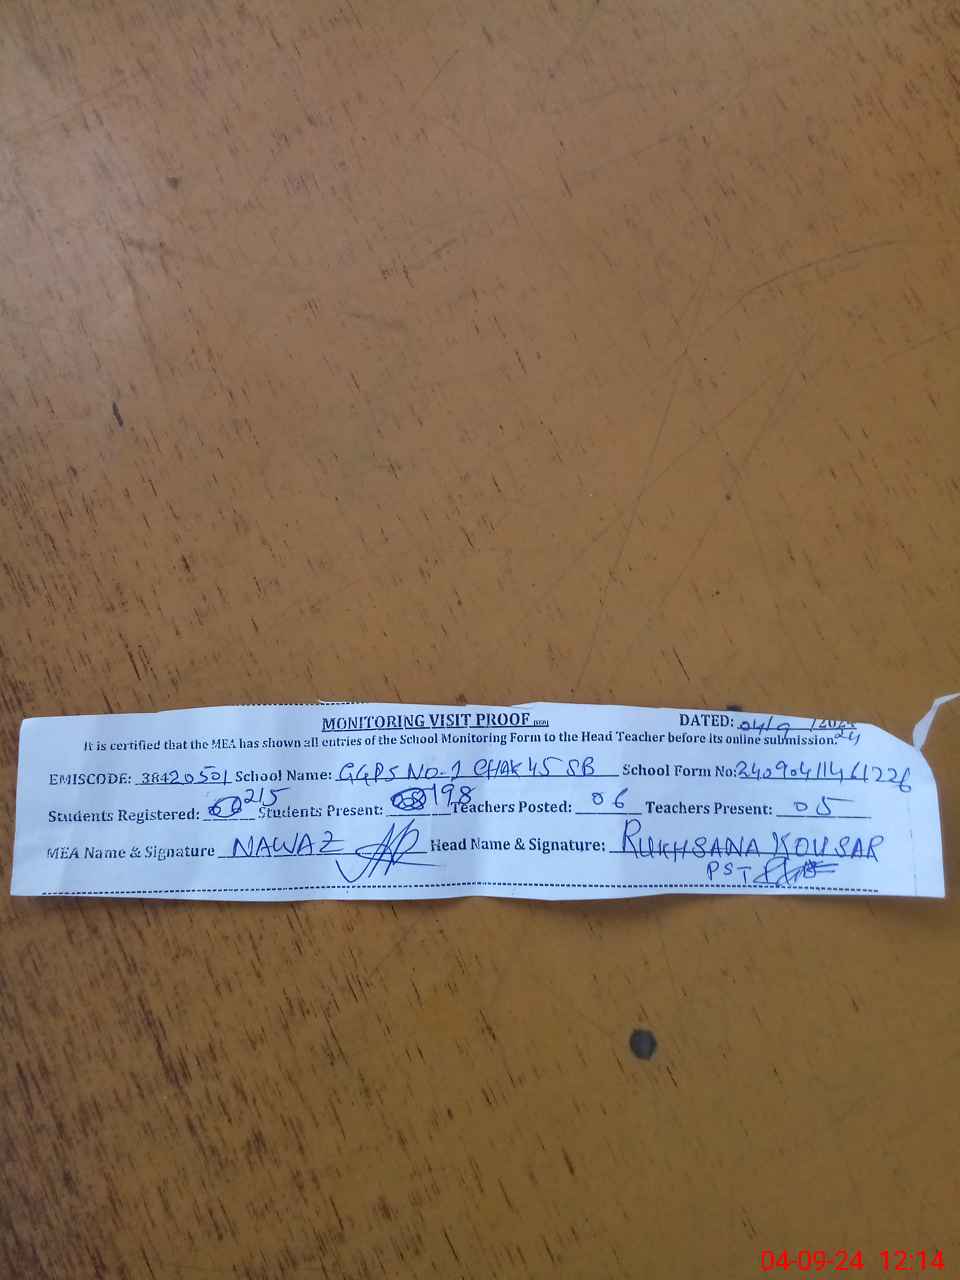 MONITORING VISIT PROOF DATED: 04/9 /2024
It is certified that the MEA has shown all entries of the School Monitoring Form to the Head Teacher before its online submission.
EMISCODE: 38420501 School Name: GGPS NO-1 CHAK 45 SB School Form No: 24090411461226
Students Registered: 215 Students Present: 198 Teachers Posted: 06 Teachers Present: 05
MEA Name & Signature NAWAZ Head Name & Signature: RUKHSANA KOUSAR
PST
04-09-24 12:14